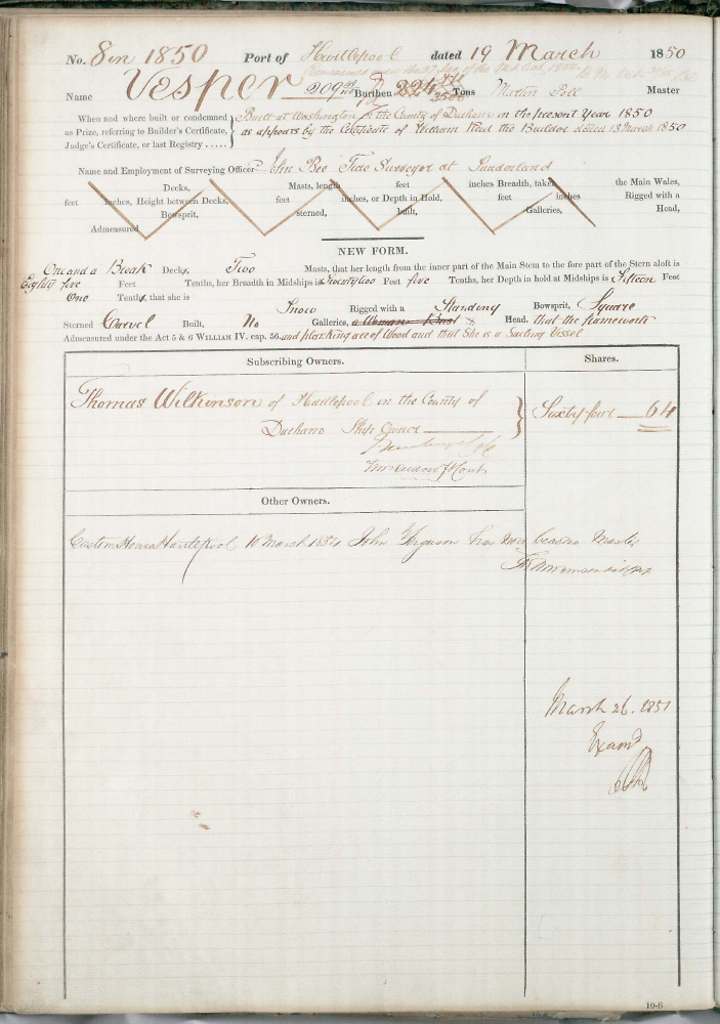 No. 8 in 1850 Port of Hartlepool dated 19 March 1850
Name Vesper Burthen 224 Tons Martin Master
When and where built or condemned
as Prize, referring to Builder's Certificate,
Judge's Certificate, or last Registry .....
Built at Washington in the County of Durham in the present Year 1850
as appears by the Certificate of William the Builder dated 13 March 1850
Name and Employment of Surveying Officer John Tide Surveyor at Sunderland
Decks, Masts, length feet inches Breadth, taken the Main Wales,
feet inches, Height between Decks, feet inches, or Depth in Hold, feet inches Rigged with a
Bowsprit, sterned, built, Galleries, Head,
Admeasured
NEW FORM.
One and a Break Decks, Two Masts, that her length from the inner part of the Main Stem to the fore part of the Stern aloft is
Eighty five Feet five Tenths, her Breadth in Midships is Twenty two Feet five Tenths, her Depth in hold at Midships is Fifteen Feet
One Tenths, that she is Snow Rigged with a Standing Bowsprit, Square
Sterned Carvel Built, No Galleries, a Woman Bust Head. that the framework
Admeasured under the Act 5 & 6 WILLIAM IV. cap. 56. and planking are of Wood and that She is a Sailing Vessel
Subscribing Owners. Shares.
Thomas Wilkinson of Hartlepool in the County of
Durham Ship Owner
Sixty four 64
Other Owners.
Custom House Hartlepool March John Ferguson has now become Master
March 26. 1851
Examd
10-6